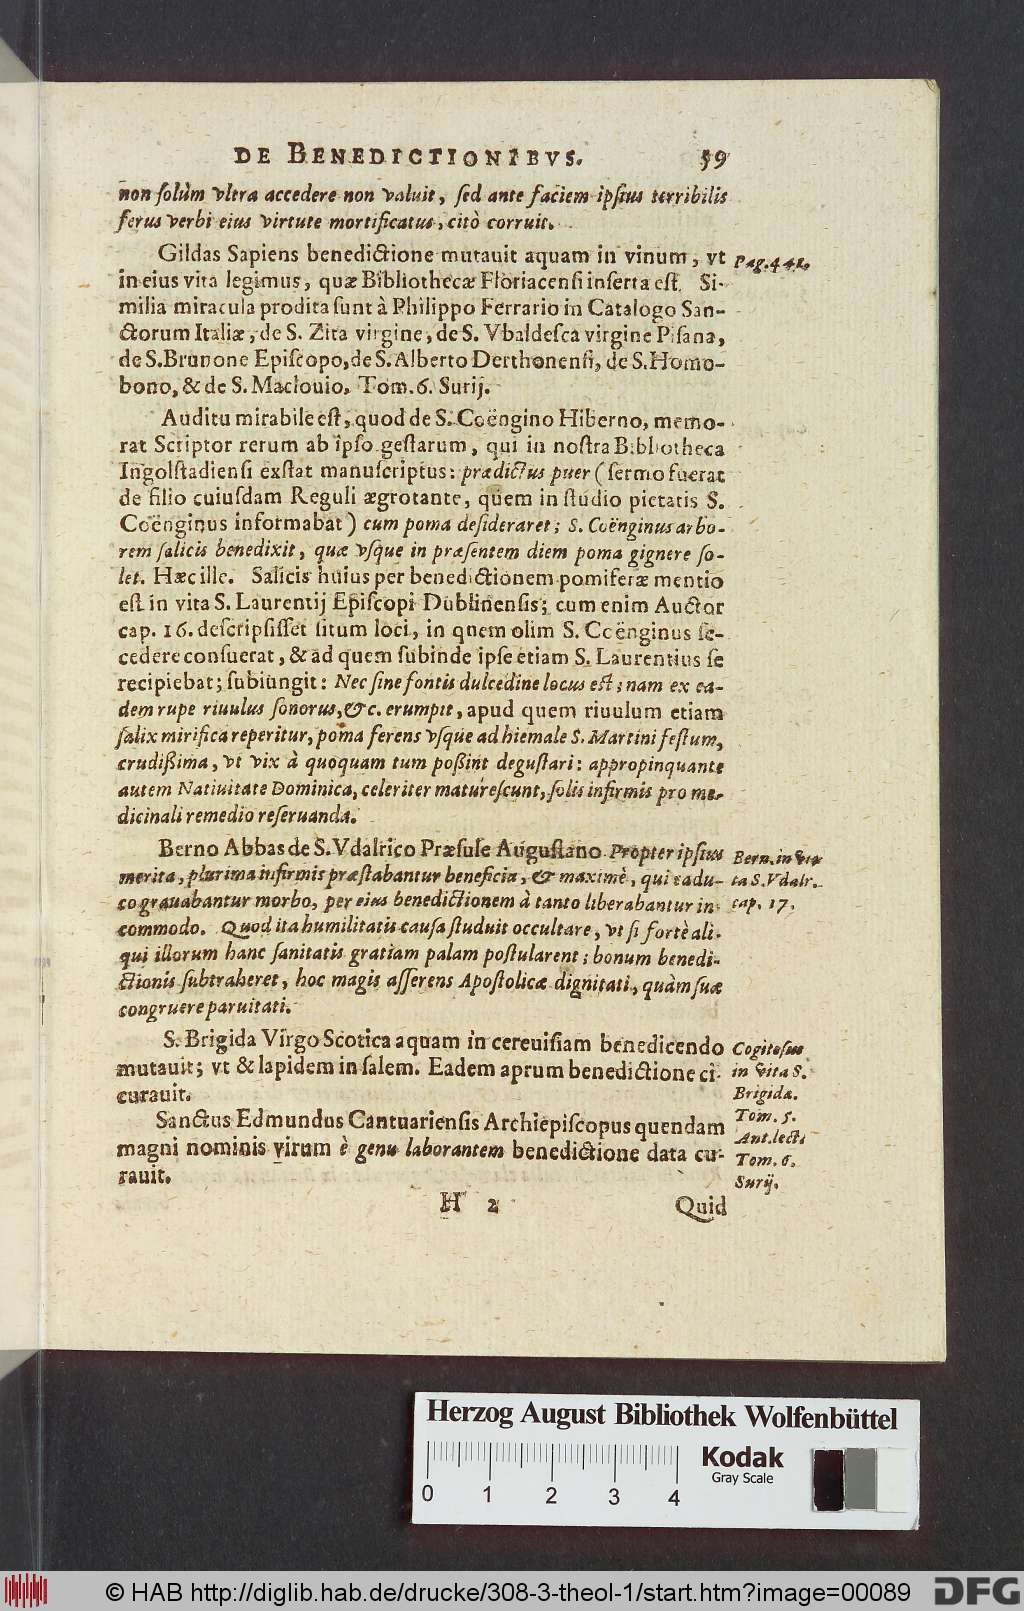 DE BENEDICTIONIBVS. 59
non solùm vltra accedere non valuit, sed ante faciem ipsius terribilis
ferus verbi eius virtute mortificatus, citò corruit.
Gildas Sapiens benedictione mutauit aquam in vinum, vt
in eius vita legimus, quæ Bibliothecæ Floriacensi inserta est. Si-
milia miracula prodita sunt à Philippo Ferrario in Catalogo San-
ctorum Italiæ, de S. Zita virgine, de S. Vbaldesca virgine Pisana,
de S. Brunone Episcopo, de S. Alberto Derthonensi, de S. Homo-
bono, & de S. Maclouio, Tom. 6. Surij.
Pag. 442.
Auditu mirabile est, quod de S. Coëngino Hiberno, memo-
rat Scriptor rerum ab ipso gestarum, qui in nostra Bibliotheca
Ingolstadiensi exstat manuscriptus: prædictus puer (sermo fuerat
de filio cuiusdam Reguli ægrotante, quem in studio pietatis S.
Coënginus informabat) cum poma desideraret; S. Coënginus arbo-
rem salicis benedixit, quæ vsque in præsentem diem poma gignere so-
let. Hæc ille. Salicis huius per benedictionem pomiferæ mentio
est in vita S. Laurentij Episcopi Dublinensis; cum enim Auctor
cap. 16. descripsisset situm loci, in quem olim S. Coënginus se-
cedere consuerat, & ad quem subinde ipse etiam S. Laurentius se
recipiebat; subiungit: Nec sine fontis dulcedine locus est; nam ex ea-
dem rupe riuulus sonorus, &c. erumpit, apud quem riuulum etiam
salix mirifica reperitur, poma ferens vsque ad hiemale S. Martini festum,
crudißima, vt vix à quoquam tum poßint degustari: appropinquante
autem Natiuitate Dominica, celeriter maturescunt, solis infirmis pro me-
dicinali remedio reseruanda.
Berno Abbas de S. Vdalrico Præsule Augustano Propter ipsius
merita, plurima infirmis præstabantur beneficia, & maximè, qui cadu-
co grauabantur morbo, per eius benedictionem à tanto liberabantur in-
commodo. Quod ita humilitatis causa studuit occultare, vt si fortè ali-
qui illorum hanc sanitatis gratiam palam postularent; bonum benedi-
ctionis subtraheret, hoc magis asserens Apostolicæ dignitati, quàm suæ
congruere paruitati.
Bern. in vita
ta S. Vdalr.
cap. 17.
S. Brigida Virgo Scotica aquam in cereuisiam benedicendo
mutauit; vt & lapidem in salem. Eadem aprum benedictione ci-
curauit.
Cogitosus
in vita S.
Brigidæ.
Tom. 5.
Ant. lect.
Sanctus Edmundus Cantuariensis Archiepiscopus quendam
magni nominis virum è genu laborantem benedictione data cu-
rauit.
Tom. 6.
Surij.
H 2 Quid
Herzog August Bibliothek Wolfenbüttel
Kodak
Gray Scale
0 1 2 3 4
© HAB http://diglib.hab.de/drucke/308-3-theol-1/start.htm?image=00089
DFG